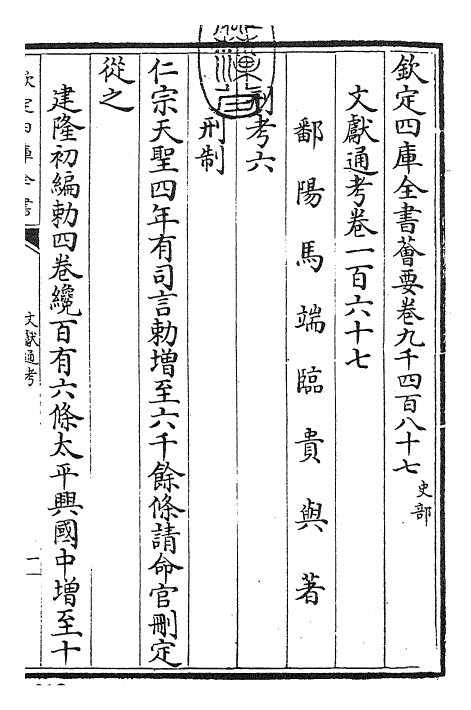 欽定四庫全書薈要卷九千四百八十七 史部
文獻通考卷一百六十七
鄱陽馬端臨貴與著
刑考六
刑制
仁宗天聖四年有司言勅增至六千餘條請命官刪定
從之
建隆初編勅四卷纔百有六條太平興國中增至十
欽定四庫全書
文獻通考
一